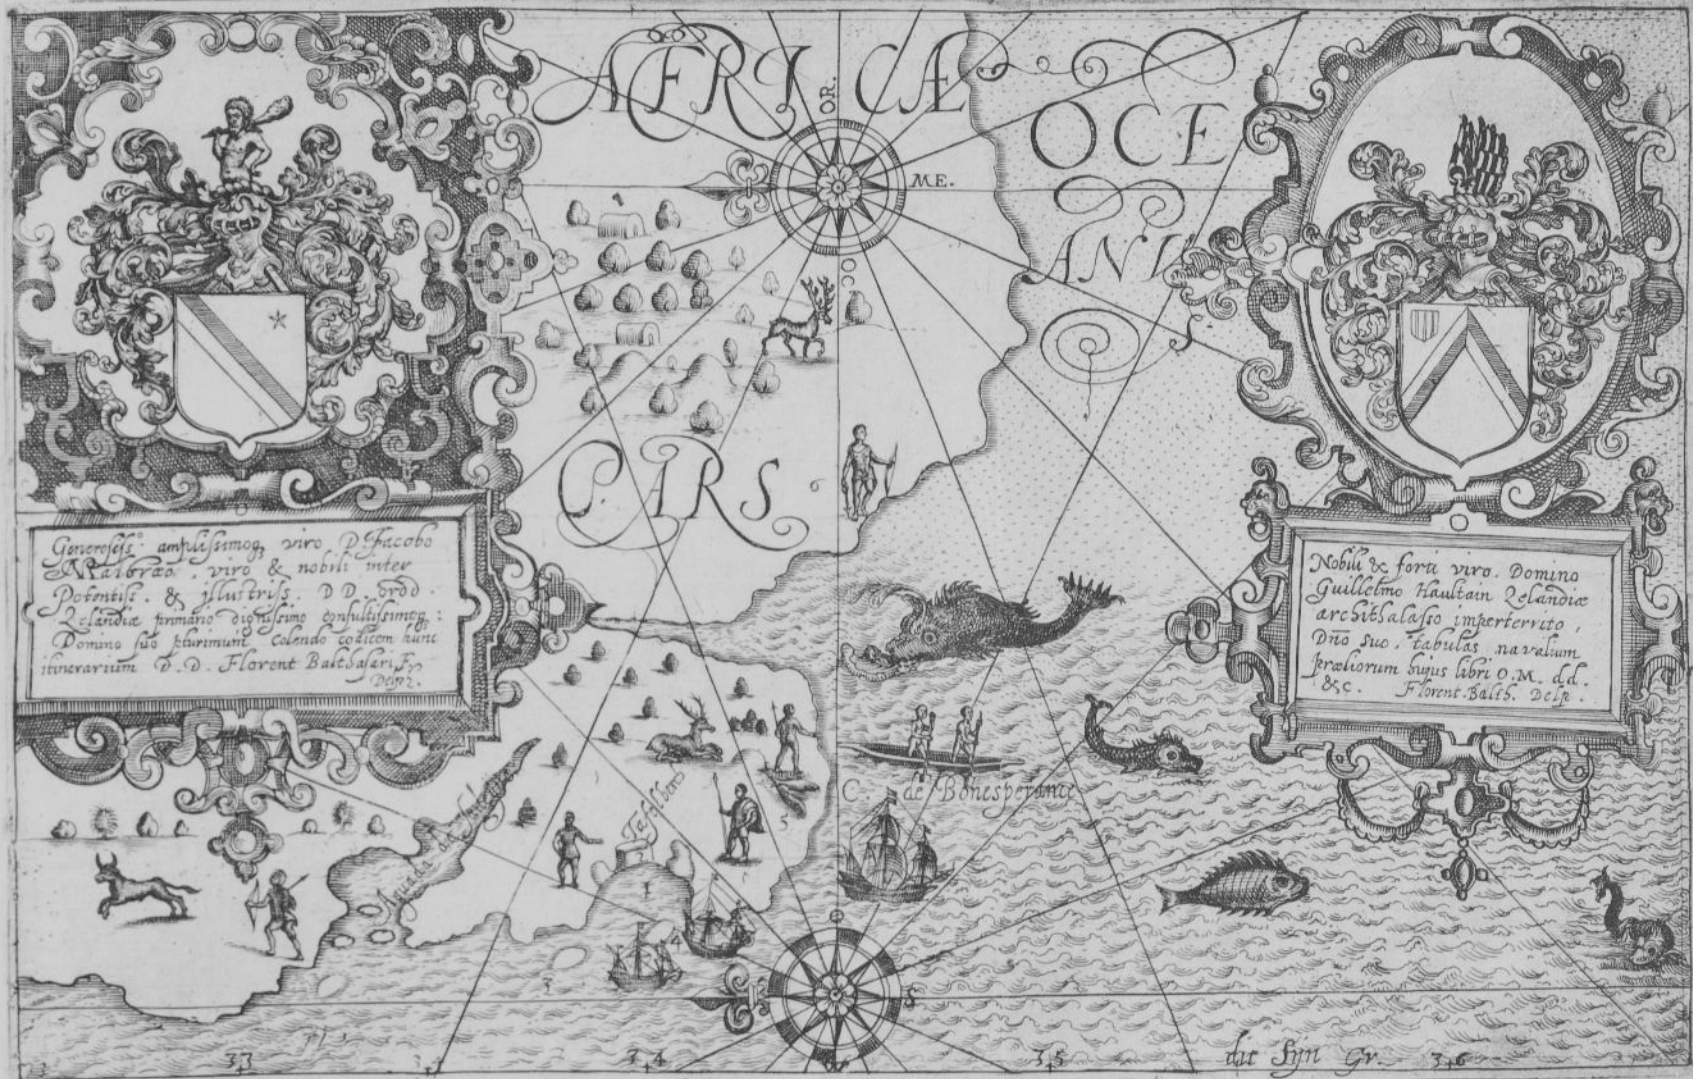 AFRICÆ
OCE
ANV
S
OR.
ME.
OC.
PARS
6
Generosiss° amplissimoq, viro D. Jacobo
Malbræo, viro & nobili inter
Potentiss. & illustriss. D D. ordd.
Zelandiæ primario dignissimo consultissimoq;
Domino suo plurimum colendo codicem hunc
itinerarium D. D. Florent Balthasari F.
Delp
Nobili & forti viro. Domino
Guillelmo Haultain Zelandiæ
archithalasso imperterrito,
Dño suo, tabulas navalium
præliorum hujus libri O. M. d.d.
&c. Florent. Balth. Delp.
C. de Bonesperance
Aguada de Saldaigna
Tafelbay
5
1
4
3
O
S
33
34
35
dit Syn Gr. 36